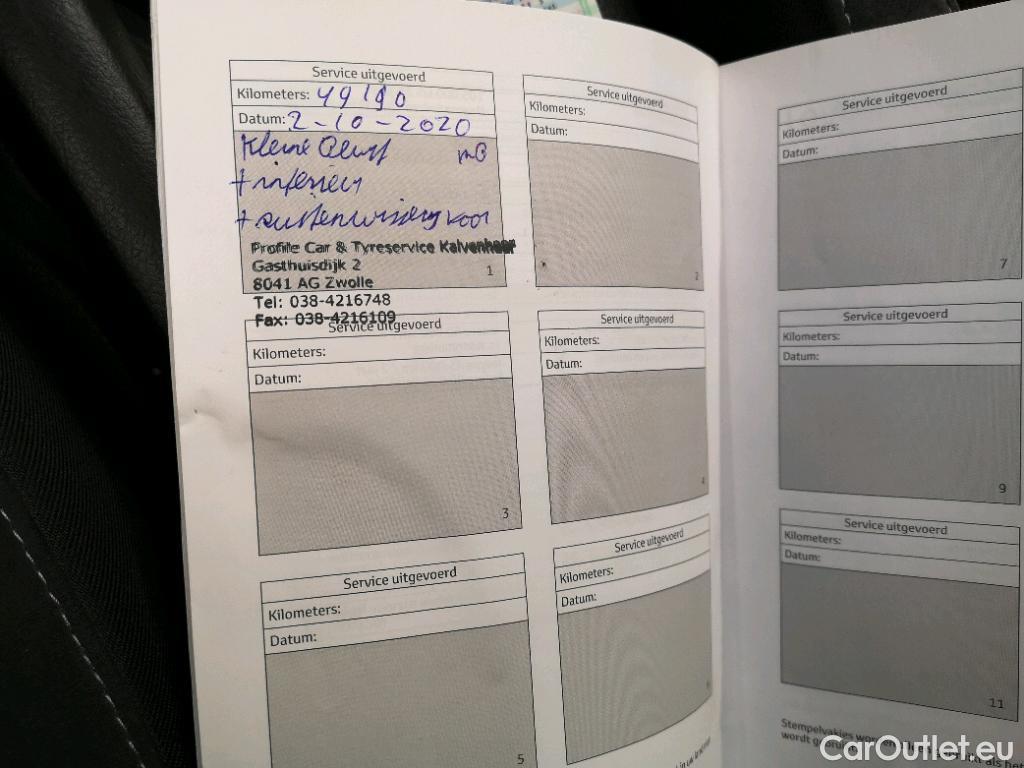 Service uitgevoerd
Kilometers: 49190
Datum: 2-10-2020
Kleine Beurt mB
+ interieur
+ ruitenwissers voor
Profile Car & Tyreservice Kalvenhaar
Gasthuisdijk 2
8041 AG Zwolle
1
Tel: 038-4216748
Fax: 038-4216109
Service uitgevoerd
Kilometers:
Datum:
2
Service uitgevoerd
Kilometers:
Datum:
7
Service uitgevoerd
Kilometers:
Datum:
3
Service uitgevoerd
Kilometers:
Datum:
4
Service uitgevoerd
Kilometers:
Datum:
9
Service uitgevoerd
Kilometers:
Datum:
5
Service uitgevoerd
Kilometers:
Datum:
6
Service uitgevoerd
Kilometers:
Datum:
11
Stempelvakjes als het
wordt
CarOutlet.eu